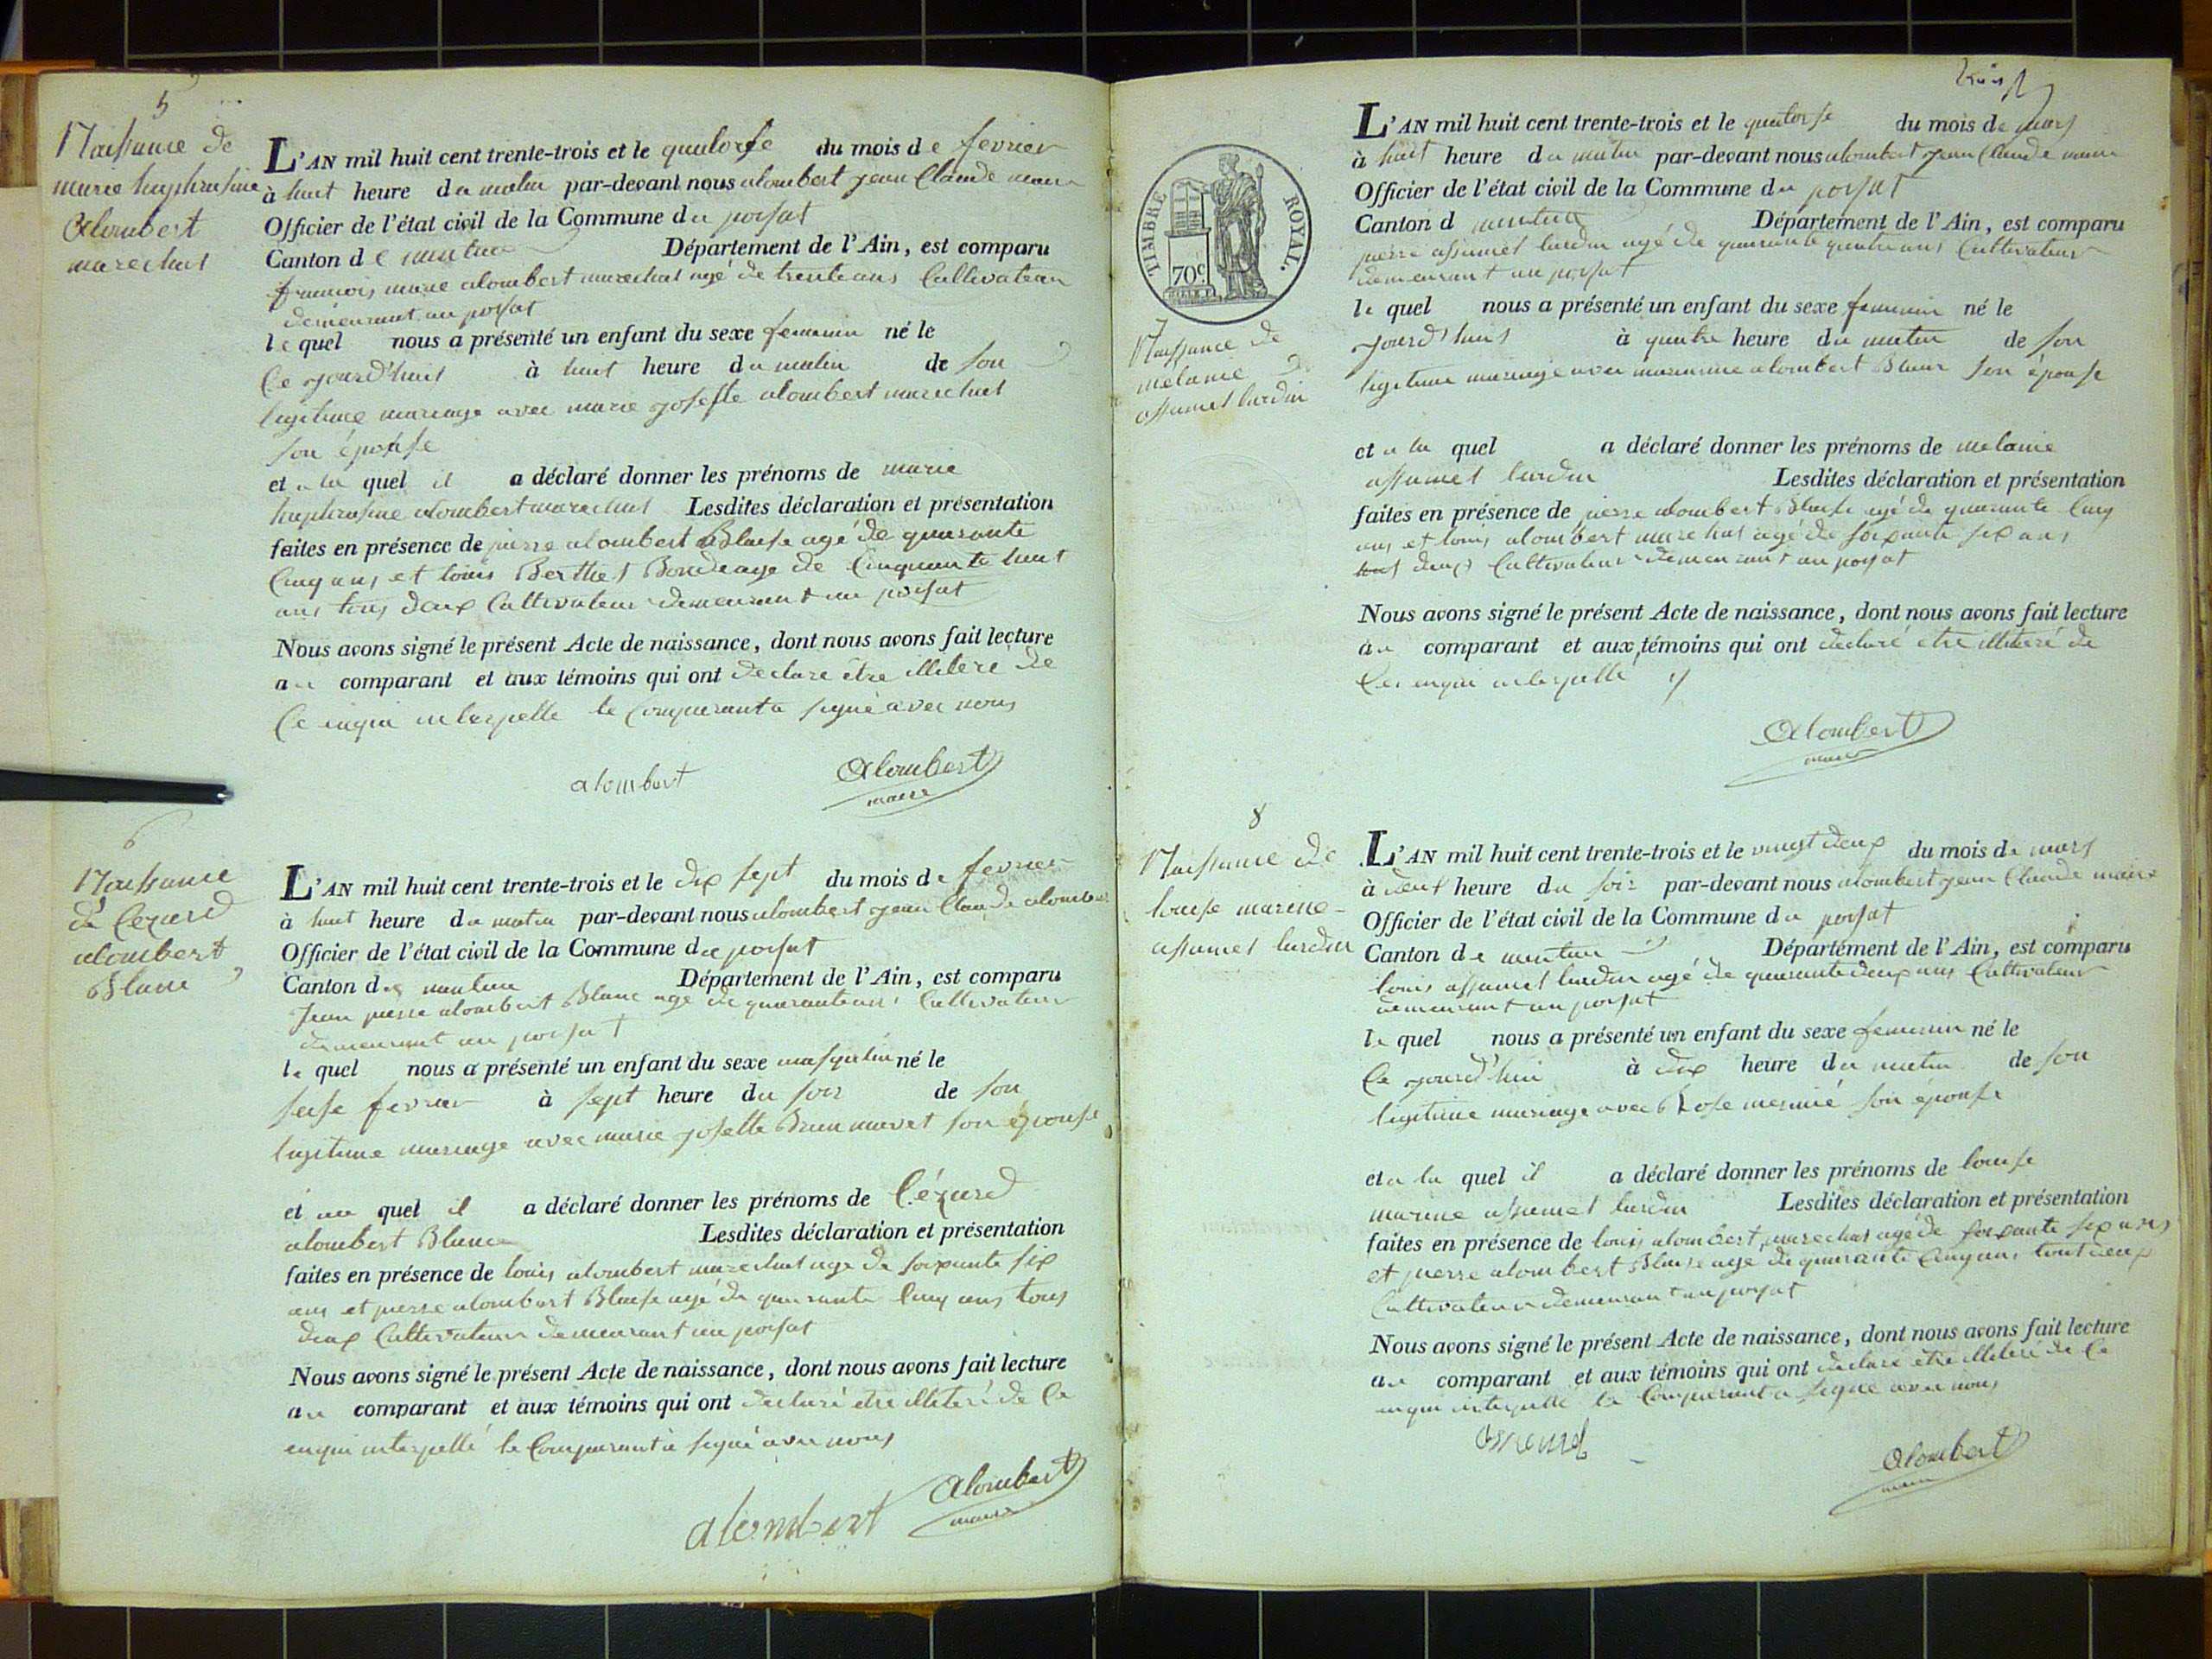 5
Naissance de
marie huphrasine
Alombert
marechat
L'AN mil huit cent trente-trois et le quatorse du mois de fevrier
à huit heure du matin par-devant nous alombert jean Claude maire
Officier de l'état civil de la Commune du porsat
Canton de nantua Département de l'Ain, est comparu
francois marie alombert marechat agé de trente ans Cultivateur
demeurant au porsat
le quel nous a présenté un enfant du sexe feminin né le
Ce jourd'huit à huit heure du matin de son
legitime mariage avec marie josefte alombert marechat
son épouse
et a la quel il a déclaré donner les prénoms de marie
huphrasine alombert marechat Lesdites déclaration et présentation
faites en présence de pierre alombert Blaise agé de quarante
Cinq ans et louis Berthet Bondeage de Cinquante huit
ans tous deux Cultivateur demeurant au porsat
Nous avons signé le présent Acte de naissance, dont nous avons fait lecture
au comparant et aux témoins qui ont declaré être illiteré de
Ce enqui interpellé le Comparant a signé avec nous
alombert Alombert
maire
6
Naissance
de Cezard
alombert
Blanc
L'AN mil huit cent trente-trois et le dix sept du mois de fevrier
à huit heure du matin par-devant nous alombert jean Claude alombert
Officier de l'état civil de la Commune du porsat
Canton de nantua Département de l'Ain, est comparu
Jean pierre alombert Blanc agé de quarante ans Cultivateur
demeurant au porsat
le quel nous a présenté un enfant du sexe masqulin né le
seise fevrier à sept heure du soir de son
legitime mariage avec marie josette Brun mavet son épouse
et au quel il a déclaré donner les prénoms de Cézard
alombert Blanc Lesdites déclaration et présentation
faites en présence de louis alombert marechat age de soixante six
ans et pierre alombert Blaise agé de quarante Cinq ans tous
deux Cultivateur demeurant au porsat
Nous avons signé le présent Acte de naissance, dont nous avons fait lecture
au comparant et aux témoins qui ont declaré etre illiteré de Ce
enqui interpellé le Comparant à signé avec nous
alombert Alombert
maire
trois
TIMBRE ROYAL.
70c
7
Naissance de
melanie
assumet lardin
L'AN mil huit cent trente-trois et le quatorse du mois de mars
à huit heure du matin par-devant nous alombert jean Claude maire
Officier de l'état civil de la Commune du porsat
Canton d nantua Département de l'Ain, est comparu
pierre assumet lardin agé de quarante quatre ans Cultivateur
demeurant au porsat
le quel nous a présenté un enfant du sexe feminin né le
jourd'huis à quatre heure du matin de son
legitime mariage avec marianne alombert Blanc son épouse
et a la quel a déclaré donner les prénoms de melanie
assumet lardin Lesdites déclaration et présentation
faites en présence de pierre alombert Blaise agé de quarante Cinq
ans et louis alombert marechat agé de soixante six ans
tout deux Cultivateur demeurant au porsat
Nous avons signé le présent Acte de naissance, dont nous avons fait lecture
au comparant et aux témoins qui ont declaré etre illiteré de
Ce enqui interpellé
Alombert
maire
8
Naissance de
louise marine
assumet lardin
L'AN mil huit cent trente-trois et le vingt deux du mois de mars
à deux heure du soir par-devant nous alombert jean Claude maire
Officier de l'état civil de la Commune du porsat
Canton de nantua Département de l'Ain, est comparu
louis assumet lardin agé de quarante deux ans Cultivateur
demeurant au porsat
le quel nous a présenté un enfant du sexe feminin né le
Ce jourd'hui à dix heure du matin de son
legitime mariage avec Rose mermié son épouse
et a la quel il a déclaré donner les prénoms de louise
marine assumet lardin Lesdites déclaration et présentation
faites en présence de louis alombert marechat agé de soixante six ans
et pierre alombert Blaise age de quarante Cinq ans tout deux
Cultivateur demeurant au porsat
Nous avons signé le présent Acte de naissance, dont nous avons fait lecture
au comparant et aux témoins qui ont declaré etre illiteré de Ce
enqui interpellé le Comparant a signé avec nous
Alombert
maire